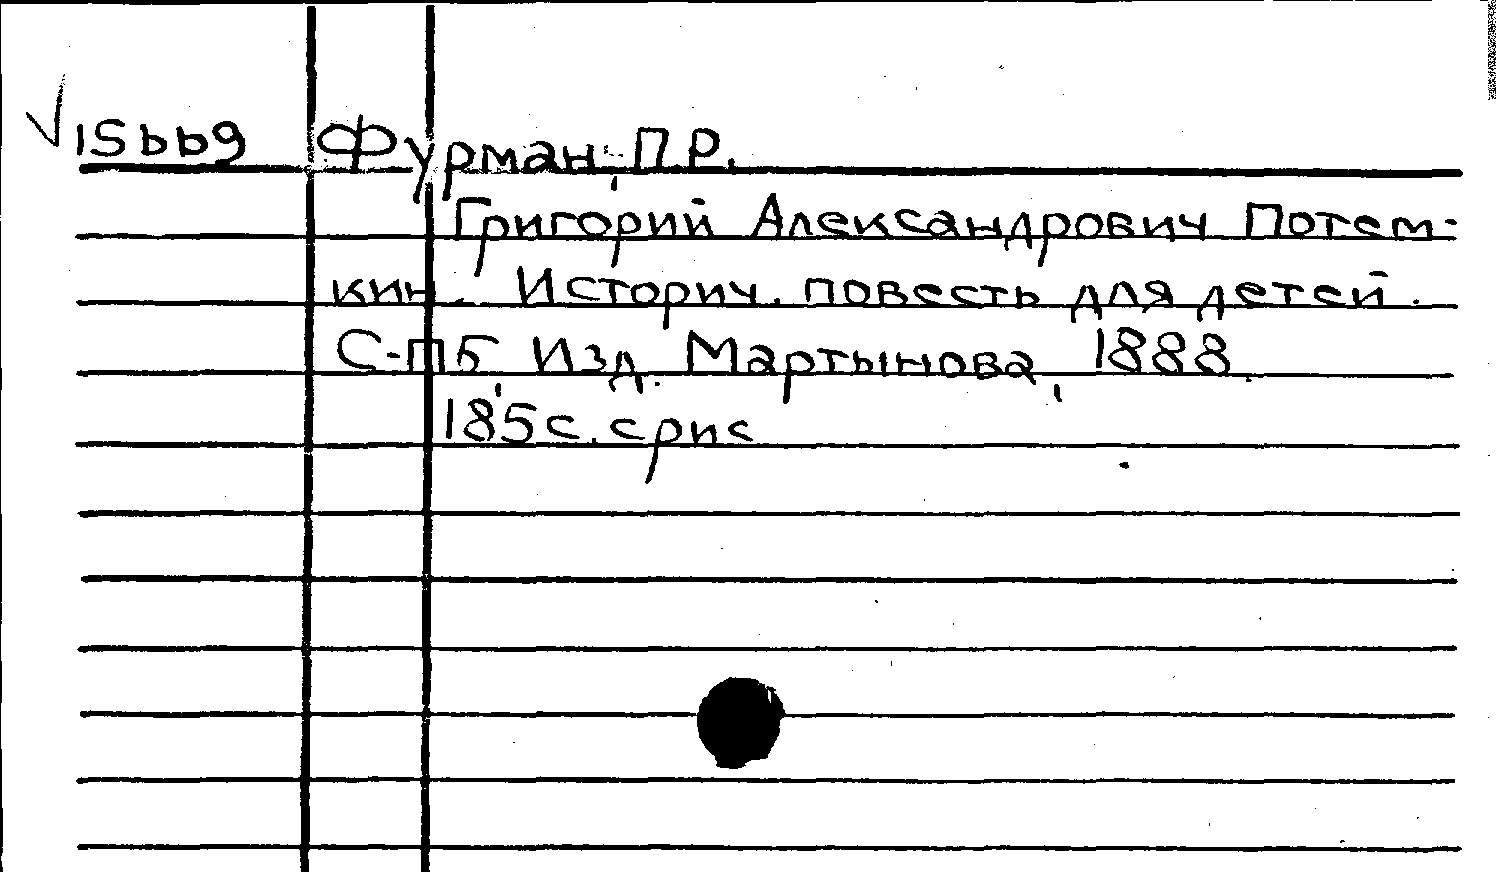 √15669 Фурман, П.Р.
Григорий Александрович Потем-
кин. Историч. повесть для детей.
С-ПБ, Изд. Мартынова, 1888.
185с. срис